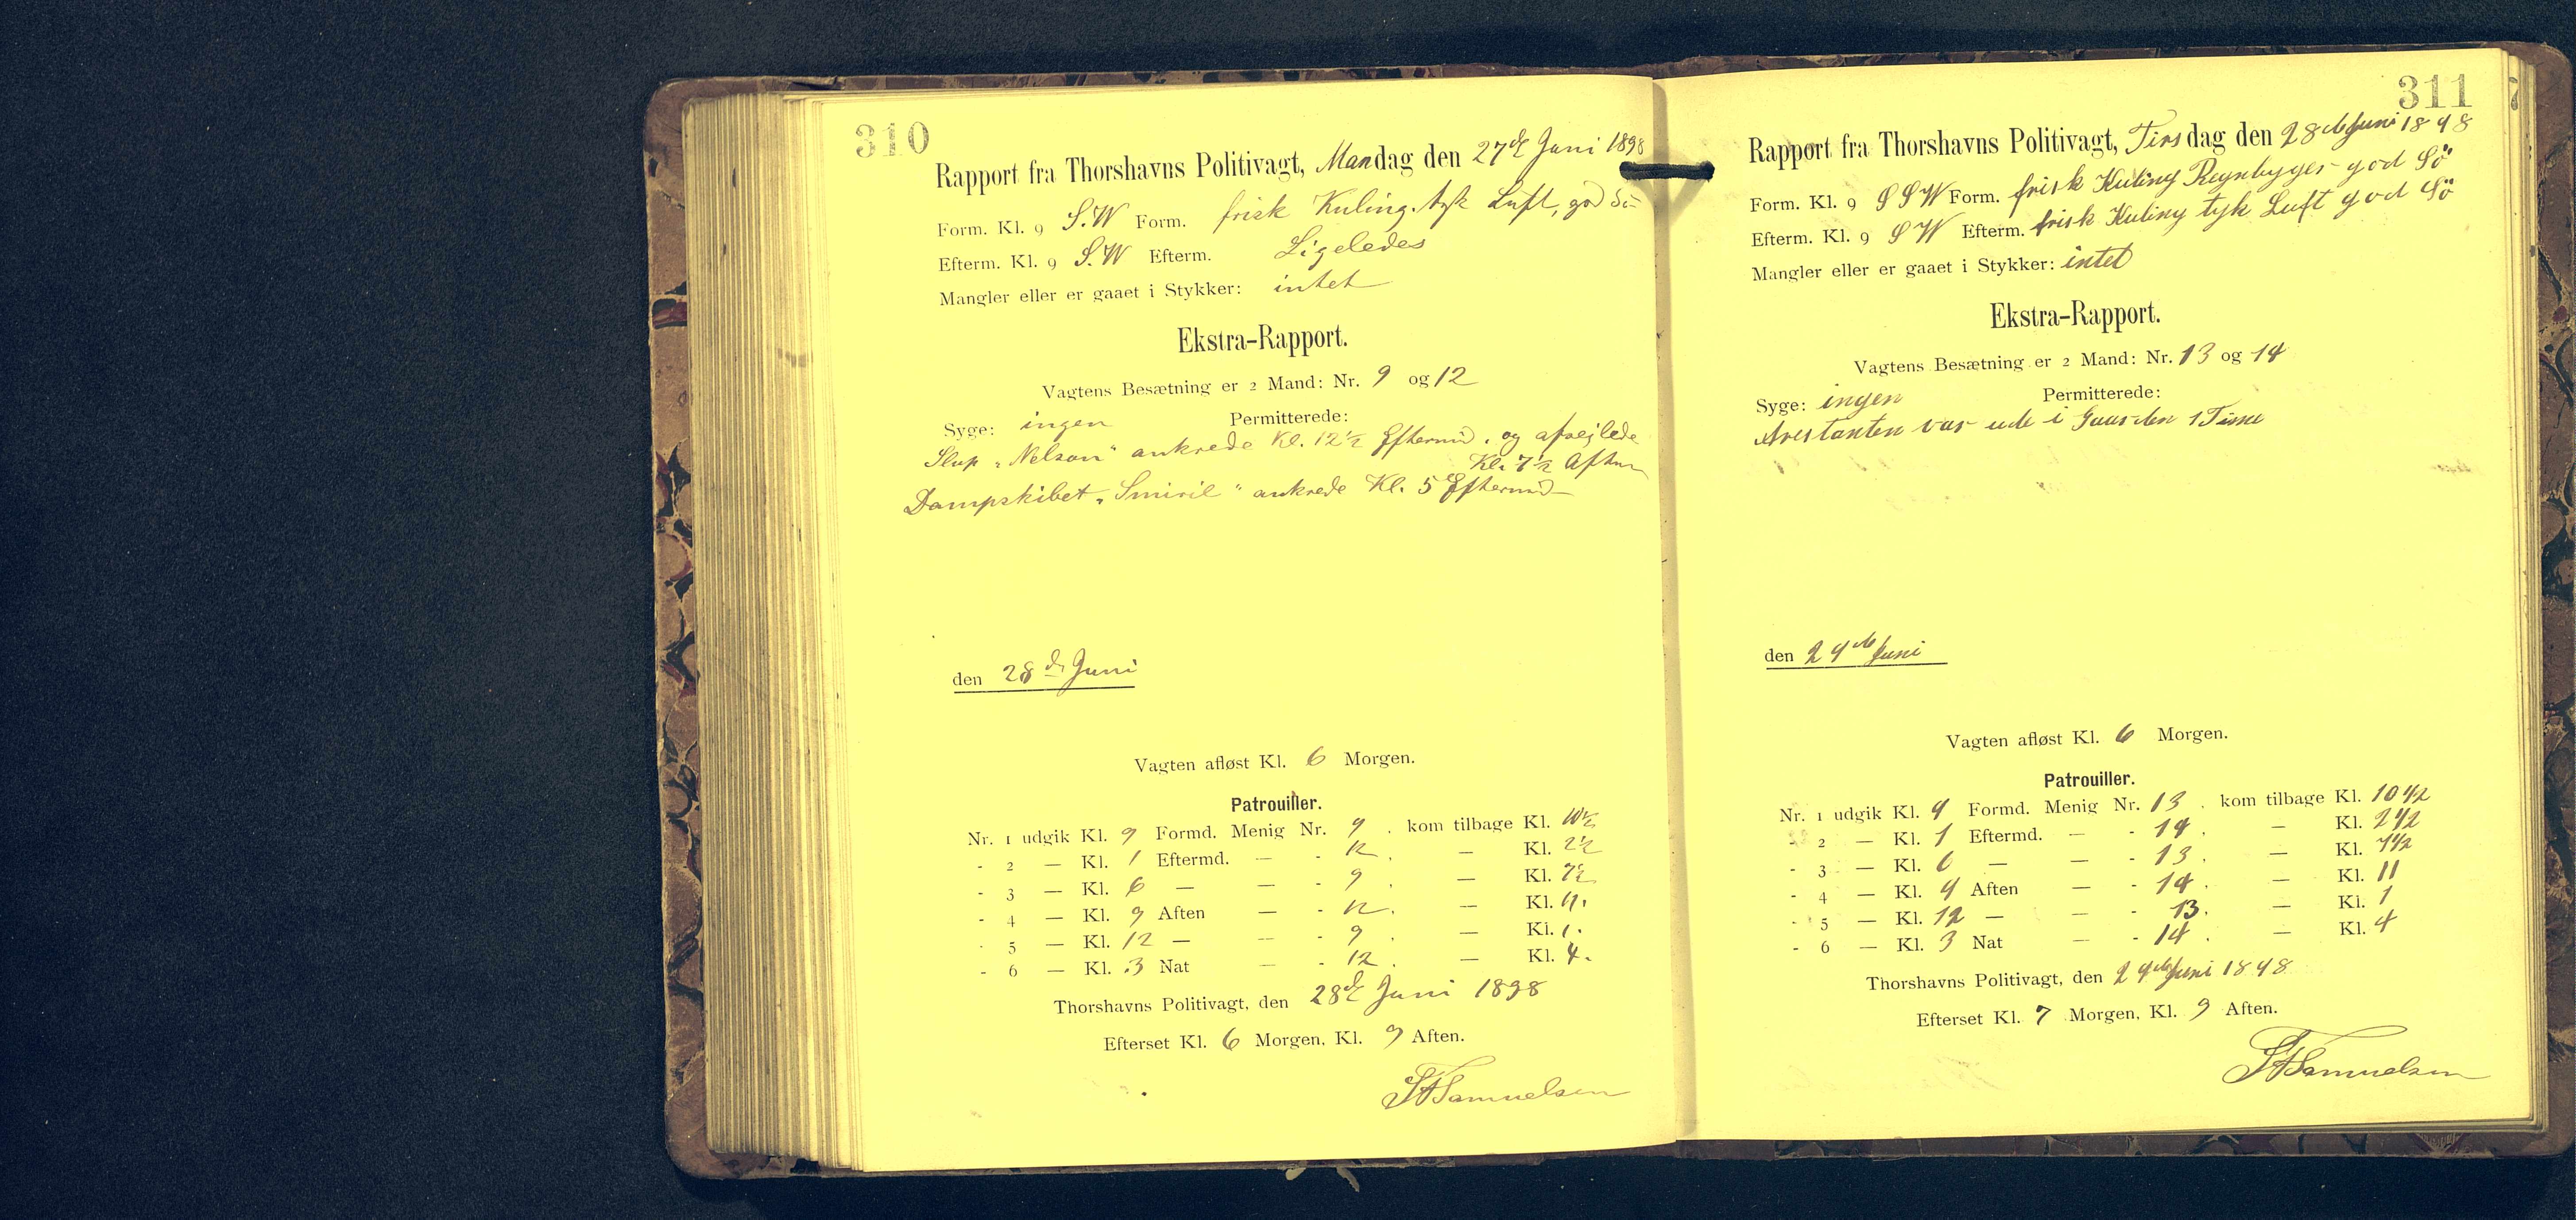 310
Rapport fra Thorshavns Politivagt, Mandag den 27de Juni 1898
Form. Kl. 9 S.W Form. frisk Kuling. tyk Luft, god Sö
Efterm. Kl. 9 S.W Efterm. Ligeledes
Mangler eller er gaaet i Stykker: intet
Ekstra-Rapport.
Vagtens Besætning er 2 Mand: Nr. 9 og 12
Syge: ingen Permitterede:
Slup „Nelson“ ankrede Kl. 12½ Eftermd. og afsejlede
Kl. 7½ Aften
Dampskibet „Smiril“ ankrede Kl. 5 Eftermd
den 28de Juni
Vagten afløst Kl. 6 Morgen.
Patrouiller.
Nr. 1 udgik Kl. 9 Formd. Menig Nr. 9 . kom tilbage Kl. 10½
- 2 — Kl. 1 Eftermd. — - 12 . — Kl. 2½
- 3 — Kl. 6 — — - 9 . — Kl. 7½
- 4 — Kl. 9 Aften — - 12 . — Kl. 11.
- 5 — Kl. 12 — — - 9 . — Kl. 1.
- 6 — Kl. 3 Nat — - 12 . — Kl. 4.
Thorshavns Politivagt, den 28de Juni 1898
Efterset Kl. 6 Morgen, Kl. 9 Aften.
Samuelsen
311
Rapport fra Thorshavns Politivagt, Tirsdag den 28de Juni 1898
Form. Kl. 9 SSW Form. frisk Kuling Regnbyger god Sö
Efterm. Kl. 9 SW Efterm. frisk Kuling tyk Luft god Sö
Mangler eller er gaaet i Stykker: intet
Ekstra-Rapport.
Vagtens Besætning er 2 Mand: Nr. 13 og 14
Syge: ingen Permitterede:
Arestanten var ude i Gaarden 1 Time
den 29de Juni
Vagten afløst Kl. 6 Morgen.
Patrouiller.
Nr. 1 udgik Kl. 9 Formd. Menig Nr. 13 . kom tilbage Kl. 10½
- 2 — Kl. 1 Eftermd. — - 14 . — Kl. 2½
- 3 — Kl. 6 — — - 13 . — Kl. 7½
- 4 — Kl. 9 Aften — - 14 . — Kl. 11
- 5 — Kl. 12 — — - 13 . — Kl. 1
- 6 — Kl. 3 Nat — - 14 . — Kl. 4
Thorshavns Politivagt, den 29de Juni 1898
Efterset Kl. 7 Morgen, Kl. 9 Aften.
Samuelsen